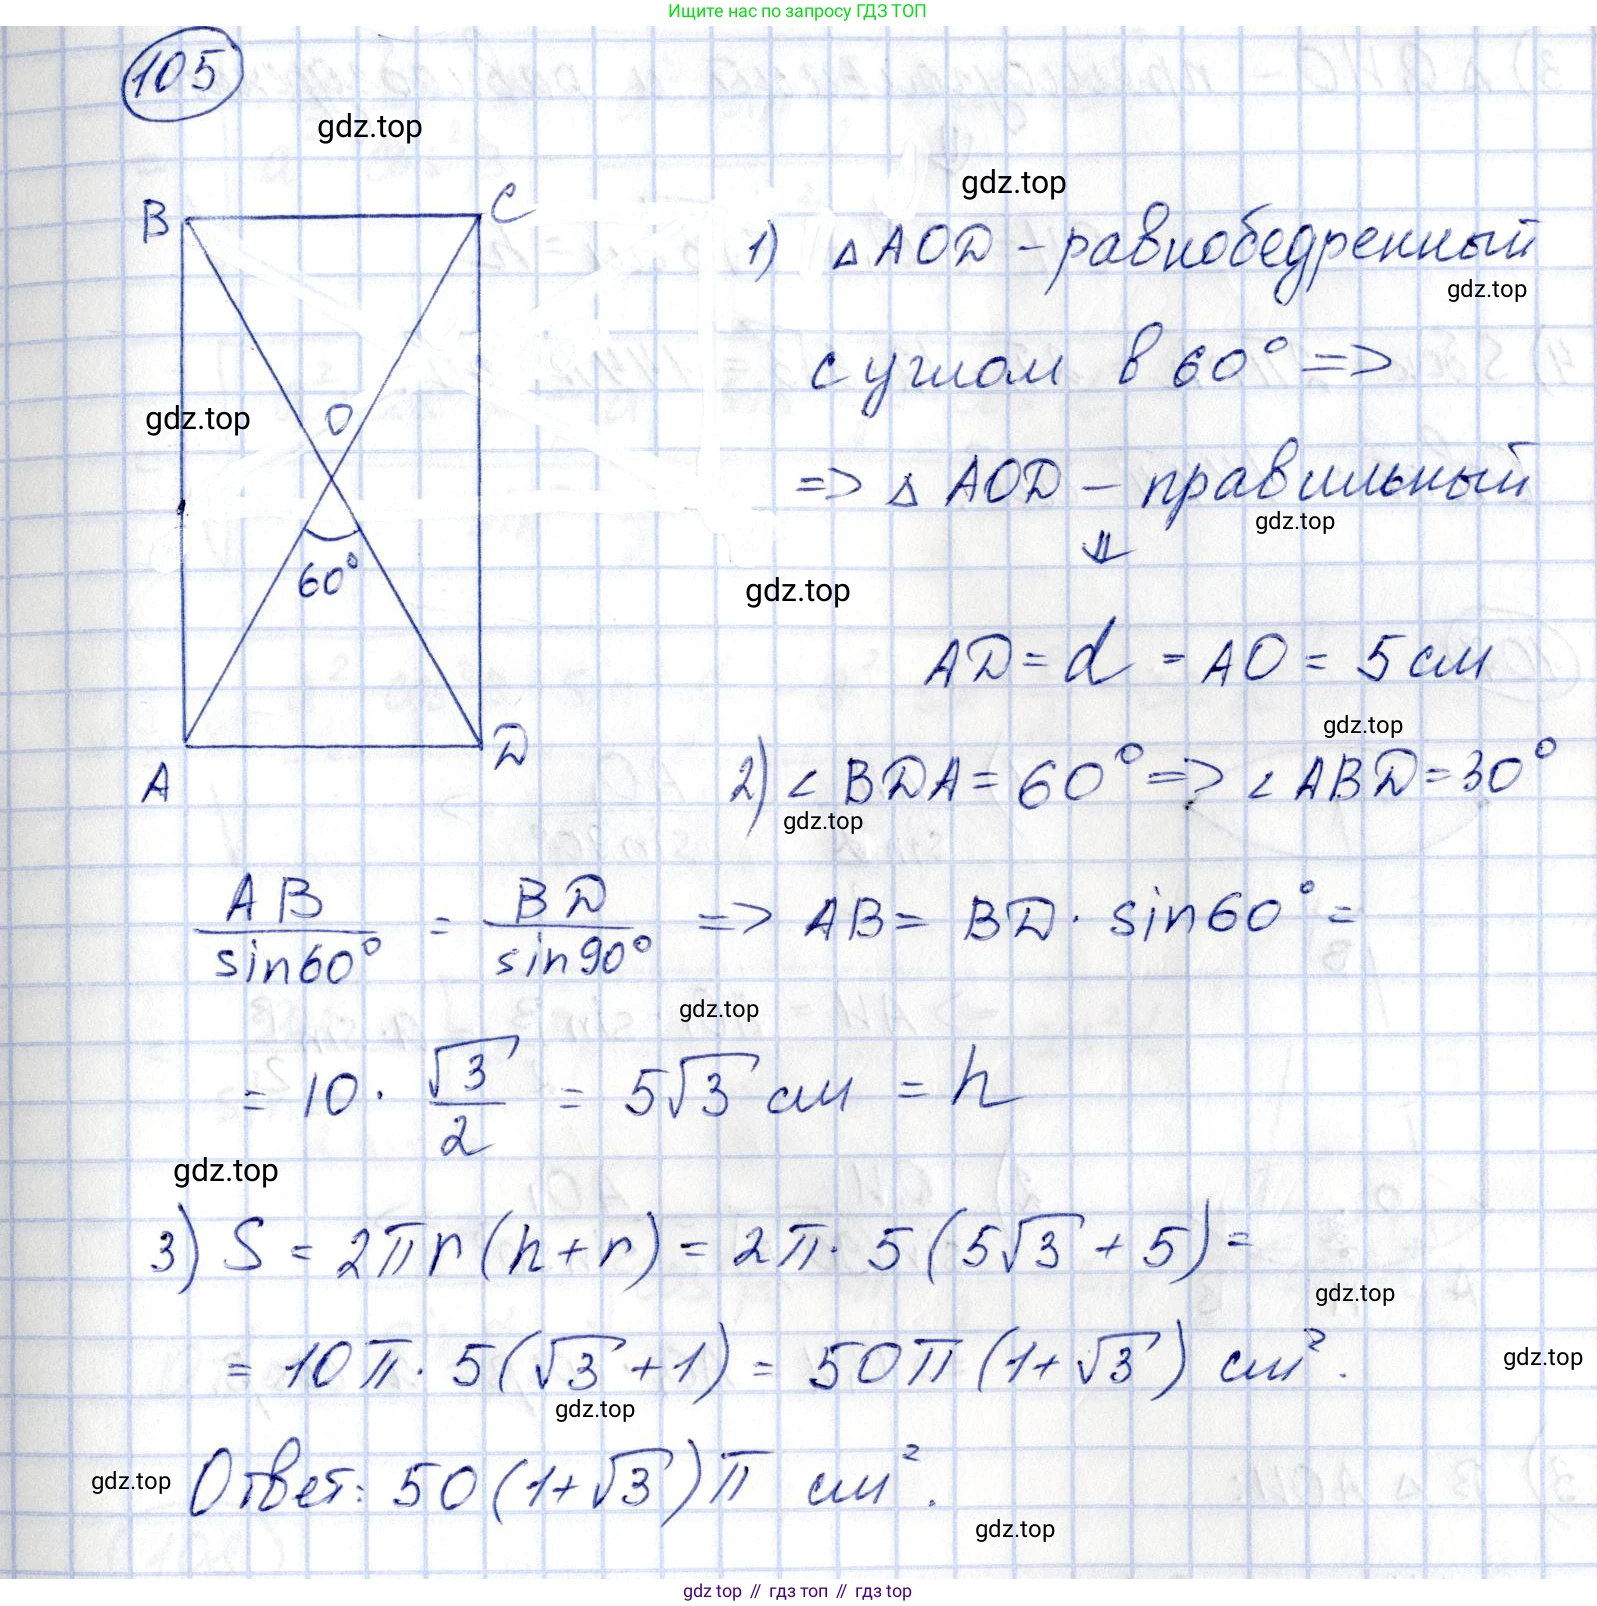 Ищите нас по запросу ГДЗ ТОП
105
gdz.top
gdz.top
B
C
1) △AOD – равнобедренный
gdz.top
с углом в 60° =>
gdz.top
O
=> △ AOD – правильный
gdz.top
⇓
60°
gdz.top
AD = d = AO = 5 см
gdz.top
A
D
2) ∠ BDA = 60° => ∠ ABD = 30°
gdz.top
AB / sin60° = BD / sin90° => AB = BD · sin60° =
gdz.top
= 10 · √3 / 2 = 5√3 см = h
gdz.top
3) S = 2πr(h+r) = 2π · 5(5√3 + 5) =
gdz.top
= 10π · 5(√3 + 1) = 50π(1+√3) см².
gdz.top
gdz.top
gdz.top
Ответ: 50(1+√3)π см².
gdz.top
gdz top // гдз топ // gdz top